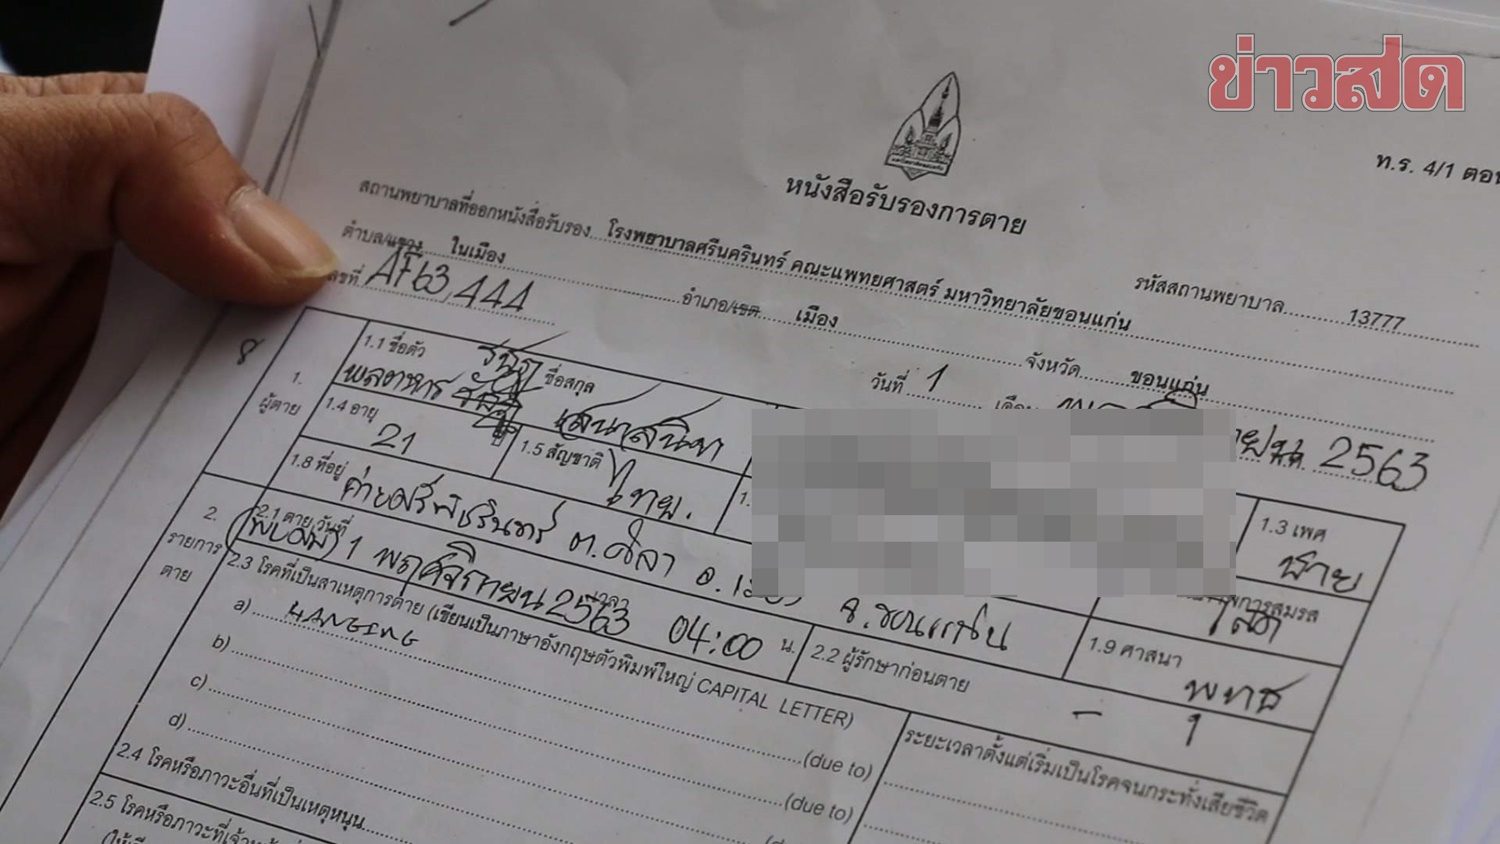 ข่าวสด
ท.ร. 4/1 ตอน
หนังสือรับรองการตาย
สถานพยาบาลที่ออกหนังสือรับรอง โรงพยาบาลศรีนครินทร์ คณะแพทยศาสตร์ มหาวิทยาลัยขอนแก่น รหัสสถานพยาบาล 13777
ตำบล/แขวง ในเมือง อำเภอ/เขต เมือง จังหวัด ขอนแก่น
เลขที่ AF63,444 วันที่ 1 เดือน 2563
1. ผู้ตาย
1.1 ชื่อตัว พลทหาร ชื่อสกุล เสนาสนิท
1.3 เพศ ชาย
1.4 อายุ 21 ปี 1.5 สัญชาติ ไทย
โสด
1.8 ที่อยู่ ค่ายศรีพัชรินทร์ ต.ศิลา อ. จ.ขอนแก่น
1.9 ศาสนา พุทธ
2. รายการตาย
2.1 ตาย วันที่ (พบศพ) 1 พฤศจิกายน 2563 เวลา 04:00 น.
2.2 ผู้รักษาก่อนตาย -
2.3 โรคที่เป็นสาเหตุการตาย (เขียนเป็นภาษาอังกฤษตัวพิมพ์ใหญ่ CAPITAL LETTER)
ระยะเวลาตั้งแต่เริ่มเป็นโรคจนกระทั่งเสียชีวิต
a) HANGING (due to)
b) (due to)
c)
d)
2.4 โรคหรือภาวะอื่นที่เป็นเหตุหนุน
2.5 โรคหรือภาวะที่